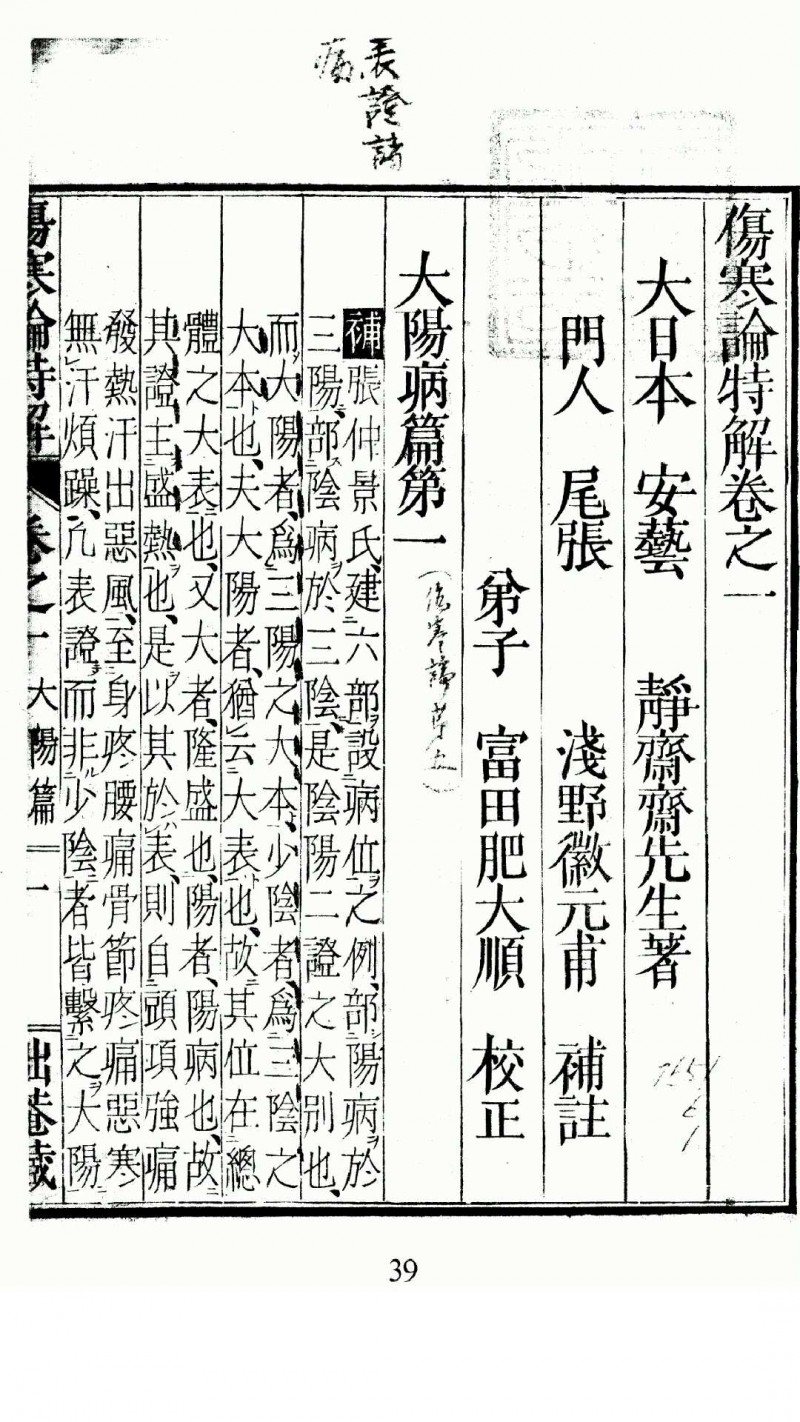 表證諸
病
傷寒論特解卷之一
大日本 安藝 靜齋齋先生著
門人 尾張 淺野徽元甫 補註
弟子 富田肥大順 校正
大陽病篇第一
補張仲景氏、建六部設病位之例、部陽病於
三陽、部陰病於三陰、是陰陽二證之大別也、
而大陽者、爲三陽之大本、少陰者、爲三陰之
大本也、夫大陽者、猶云大表也、故其位在總
體之大表也、又大者、隆盛也、陽者、陽病也、故
其證主盛熱也、是以其於表、則自頭項強痛
發熱汗出惡風、至身疼腰痛骨節疼痛惡寒
無汗煩躁、凡表證而非少陰者皆繫之大陽
傷寒論特解 卷之一 大陽篇 一
39